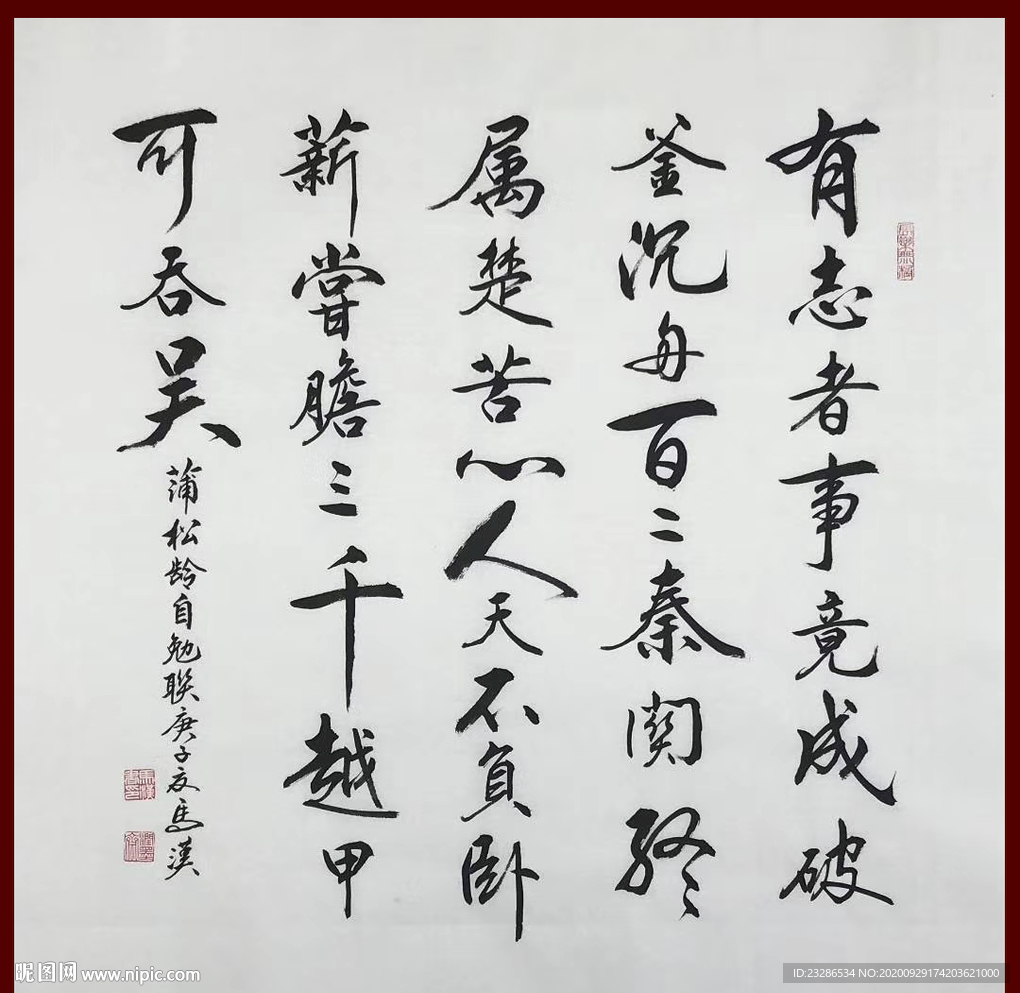 有志者事竟成破
釜沉舟百二秦関终
属楚苦心人天不負卧
薪嘗膽三千越甲
可吞吴
蒲松龄自勉联庚子夏馬漢
昵图网 www.nipic.com
ID:23286534 NO:20200929174203621000